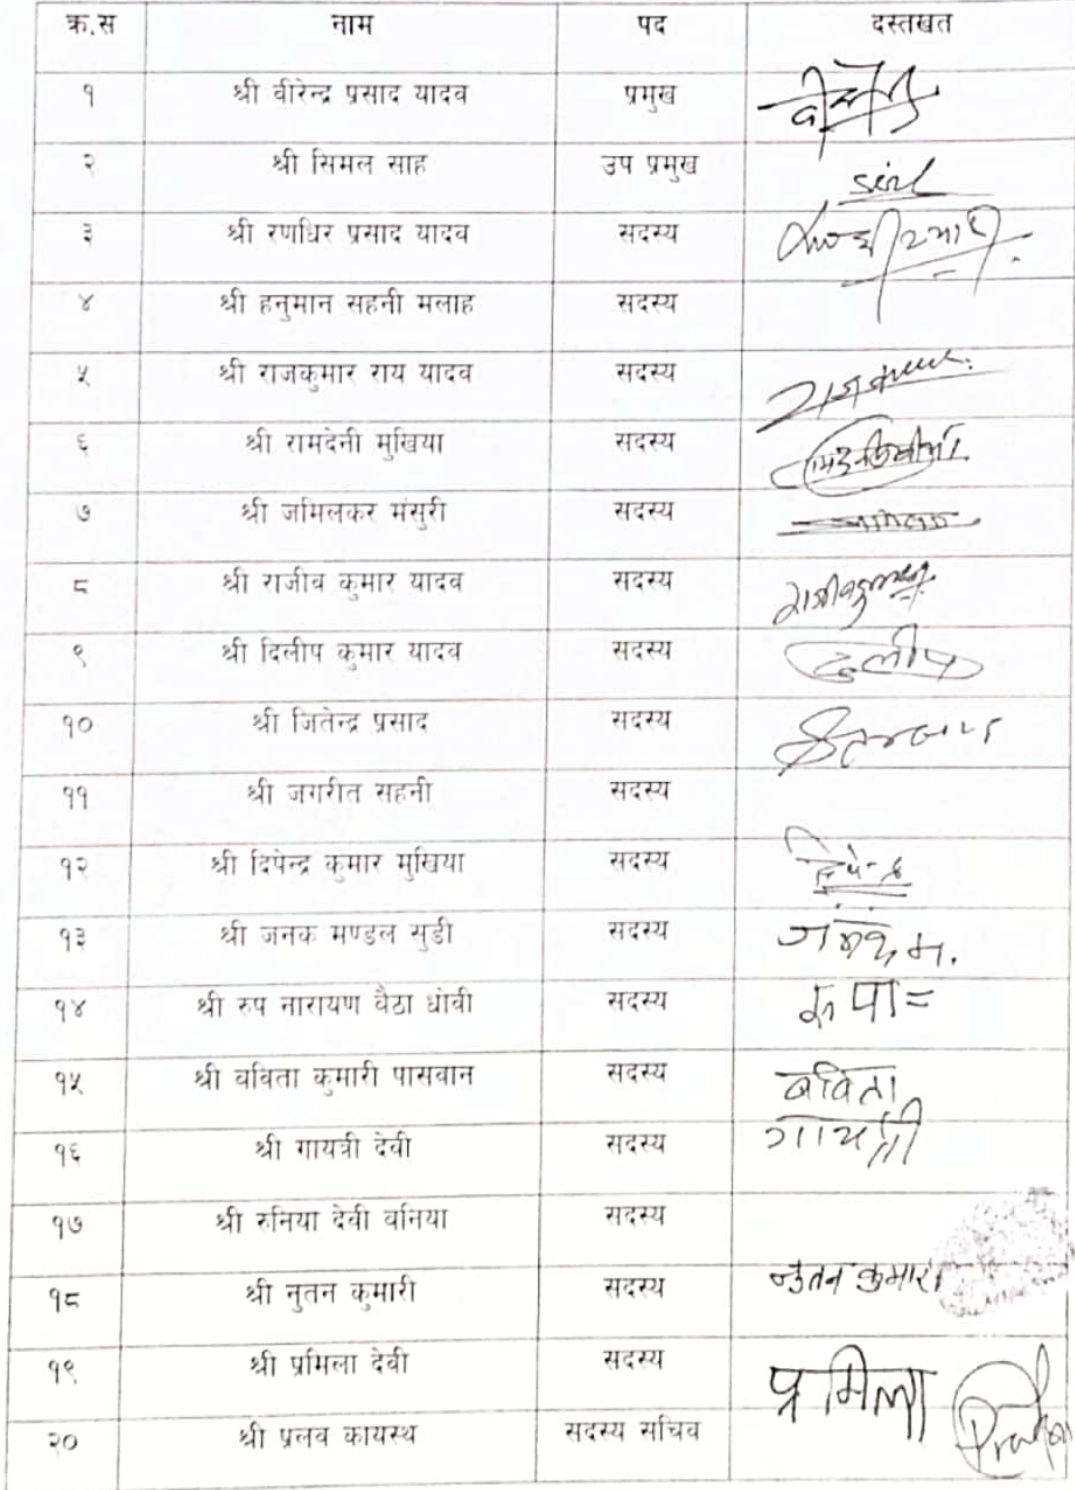 क्र.स नाम पद दस्तखत
१ श्री वीरेन्द्र प्रसाद यादव प्रमुख
२ श्री सिमल साह उप प्रमुख
३ श्री रणधिर प्रसाद यादव सदस्य
४ श्री हनुमान सहनी मलाह सदस्य
५ श्री राजकुमार राय यादव सदस्य
६ श्री रामदेनी मुखिया सदस्य
७ श्री जमिलकर मंसुरी सदस्य
८ श्री राजीव कुमार यादव सदस्य
९ श्री दिलीप कुमार यादव सदस्य
१० श्री जितेन्द्र प्रसाद सदस्य
११ श्री जगरीत सहनी सदस्य
१२ श्री दिपेन्द्र कुमार मुखिया सदस्य
१३ श्री जनक मण्डल सुडी सदस्य
१४ श्री रुप नारायण वैठा धोवी सदस्य रुपा
१५ श्री वविता कुमारी पासवान सदस्य बविता
१६ श्री गायत्री देवी सदस्य गायत्री
१७ श्री रुनिया देवी वनिया सदस्य
१८ श्री नुतन कुमारी सदस्य नुतन कुमारी
१९ श्री प्रमिला देवी सदस्य प्रमिला
२० श्री प्रलव कायस्थ सदस्य सचिव